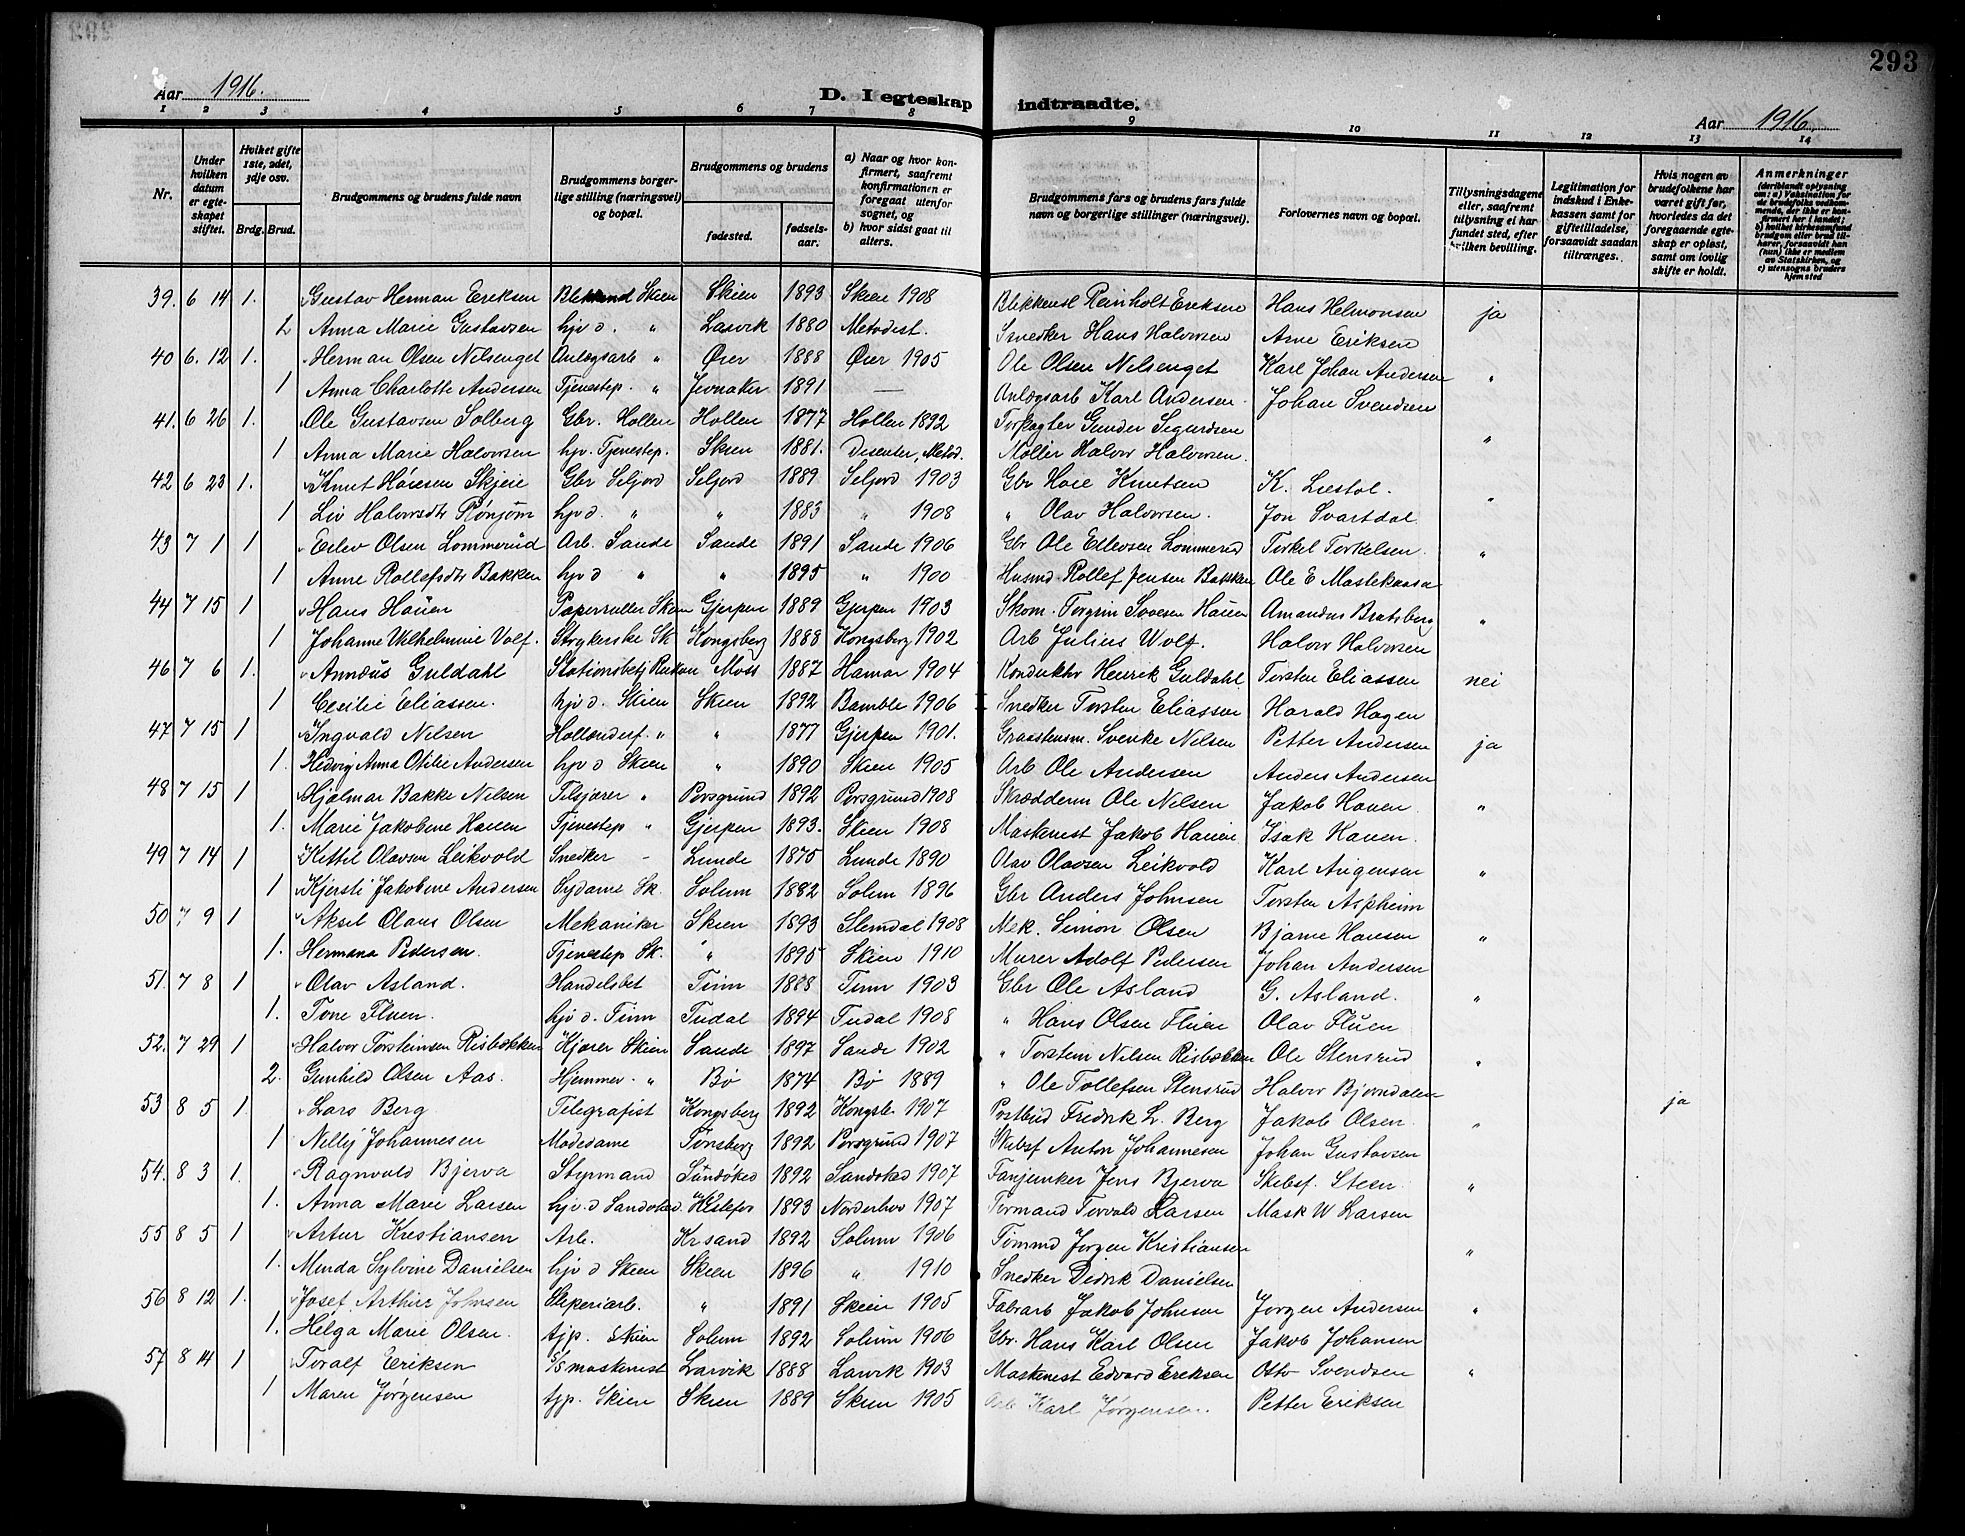 293
Aar 1916. D. I egteskap indtraadte. Aar 1916.
1 2 3 4 5 6 7 8 9 10 11 12 13 14
Nr.
Under hvilken datum er egteskapet stiftet.
Hvilket gifte 1ste, 2det, 3dje osv.
Brdg. Brud.
Brudgommens og brudens fulde navn
Brudgommens borgerlige stilling (næringsvei) og bopæl.
Brudgommens og brudens
fødested.
fødselsaar.
a) Naar og hvor konfirmert, saafremt konfirmationen er foregaat utenfor sognet, og
b) hvor sidst gaat til alters.
Brudgommens fars og brudens fars fulde navn og borgerlige stillinger (næringsvei).
Forlovernes navn og bopæl.
Tillysningsdagene eller, saafremt tillysning ei har fundet sted, efter hvilken bevilling.
Legitimation for indskud i Enkekassen samt for giftetilladelse, forsaavidt saadan tiltrænges.
Hvis nogen av brudefolkene har været gift før, hvorledes da det foregaaende egteskap er opløst, samt om lovlig skifte er holdt.
Anmerkninger
(deriblandt oplysning om: a) Vaksination for de brudefolks vedkommende, der ikke er konfirmert her i landet; b) hvilket kirkesamfund brudgom eller brud tilhører, forsaavidt han (hun) ikke er medlem av Statskirken, og c) utensogns bruders hjemsted
39. 6 14 1. Gustav Herman Eriksen Skien Skien 1893 Skien 1908 Blikkensl Reinholt Eriksen Hans Helmonsen ja
2 Anna Marie Gustavsen hjv d. " Larvik 1880 Metodist. Snedker Hans Halvorsen Arne Eriksen
40 6. 12 1. Herman Olsen Nilsenget Anlægsarb " Øier 1888 Øier 1905 Ole Olsen Nilsenget Karl Johan Andersen "
1 Anna Charlotte Andersen Tjenestep. " Jevnaker 1891 — Anlægsarb Karl Andersen Johan Svendsen
41. 6 26 1. Ole Gustavsen Solberg Gbr. Hollen Hollen 1877 Hollen 1892 Gunder Sigurdsen "
1 Anna Marie Halvorsen hjv. Tjenestep. Skien 1881. Disenter, Metod. Møller Halvor Halvorsen.
42 6 23 1. Knut Høiesen Skjeie Gbr Seljord Seljord 1889 Seljord 1903 Gbr Høie Knutsen K. Liestøl. "
1 Liv Halvorsdtr Rønjom hjv d. " " 1883 " 1908 " Olav Halvorsen. Jon Svartdal
43 7 1 1 Eilev Olsen Lommerud Arb. Sande Sande 1891 Sande 1906 Gbr Ole Ellevsen Lommerud Torkel Torkelsen. "
1 Anne Rollefsdtr Bakken hjv d " " 1895 " 1900 Husmd Rollef Jensen Bakken Ole E Mastekaasa
44 7 15 1 Hans Hauen Papirruller Skien Gjerpen 1889 Gjerpen 1903 Skom. Torgrim Hauen Amandus Bratsberg "
1 Johanne Vilhelmine Volf. Strykerske Sk Kongsberg 1888 Kongsberg 1902 Arb Julius Wolf. Halvor Halvorsen
46 7 6 1. Annæus Guldahl Stationsbetj Rjukan Moss 1887 Hamar 1904 Konduktør Henrik Guldahl. Torsten Eliassen nei
1 Cecilie Eliassen. hjv d. Skien Skien 1892 Bamble 1906 Snedker Torsten Eliassen Harald Hagen
47 7 15 1 Ingvald Nilsen Hollænderf. " " 1877 Gjerpen 1901. Graastensm. Svenke Nilsen Petter Andersen ja
1. Hedvig Anna Otilie Andersen hjv d Skien " 1890 Skien 1905 Arb Ole Andersen Anders Andersen
48 7 15 1 Hjalmar Bakke Nilsen " Porsgrund 1892 Porsgrund 1908 Skrædderm Ole Nilsen Jakob Hauen "
1. Marie Jakobine Hauen Tjenestep " Gjerpen 1893. Skien 1908 Maskinist Jakob Hauen Isak Hauen.
49 7 14 1 Kittil Olavsen Leikvold Snedker - Lunde 1875 Lunde 1890 Olav Olavsen Leikvold Karl Augensen "
1 Kjersti Jakobine Andersen Sydame Sk. Solum 1882 Solum 1896 Gbr Anders Johnsen Torsten Aspheim
50 7 9 1 Aksel Olaus Olsen Mekaniker Skien 1893 Slemdal 1908 Mek. Simon Olsen Bjarne Hansen "
1. Hermana Pedersen. Tjenestep Sk. " 1895 Skien 1910 Murer Adolf Pedersen Johan Andersen
51. 7 8 1 Olav Asland. Handelsbet Tinn 1888 Tinn 1903 Gbr Ole Asland G. Asland. "
1. Tone Fluen. hjv d. Tinn Tudal 1894 Tudal 1908 " Hans Olsen Fluen Olav Fluen
52. 7 29 1 Halvor Torsteinsen Risbakken Kjører Skien Sande 1897 Sande 1902 " Torstein Nilsen Risbakken Ole Stensrud "
2. Gunhild Olsen Aas. Hjemmev. " Bø 1874 Bø 1889 " Ole Tollefsen Stensrud Halvor Bjørndalen ja
53 8 5 1. Lars Berg Telegrafist Kongsberg 1892 Kongsb. 1907 Postbud Fredrik L. Berg Jakob Olsen. "
1 Nelly Johannesen Modedame Tønsberg 1892 Porsgrund 1907 Skibsf Anton Johannesen Johan Gustavsen
54. 8 3 1. Ragnvald Bjerva Styrmand Sandøked 1892 Sandøked 1907 Fanjunker Jens Bjerva Skibsf. Steen. "
1. Anna Marie Larsen hjv. d Sandøked. 1893 Norderhov 1907 Formand Torvald Larsen Mask W Larsen
55 8 5 1 Artur Kristiansen Arb. Kr.sand 1892 Solum 1906 Tømmd Jørgen Kristiansen "
1. Minda Sylvine Danielsen hjv d Skien Skien 1896 " 1910 Snedker Didrik Danielsen
56 8 12 1. Josef Arthur Johnsen Sliperiarb. " 1891 Skien 1905 Fabrarb Jakob Johnsen Jørgen Andersen "
1. Helga Marie Olsen. tjp. Skien Solum 1892 Solum 1906 Gbr. Hans Karl Olsen Jakob Johansen
57 8 14 1 Toralf Eriksen S/S maskinist Larvik 1888 Larvik 1903 Maskinist Edvard Eriksen Otto Svendsen "
1 Maren Jørgensen tjp. Skien Skien 1889 Skien 1905 Arb Karl Jørgensen. Petter Eriksen